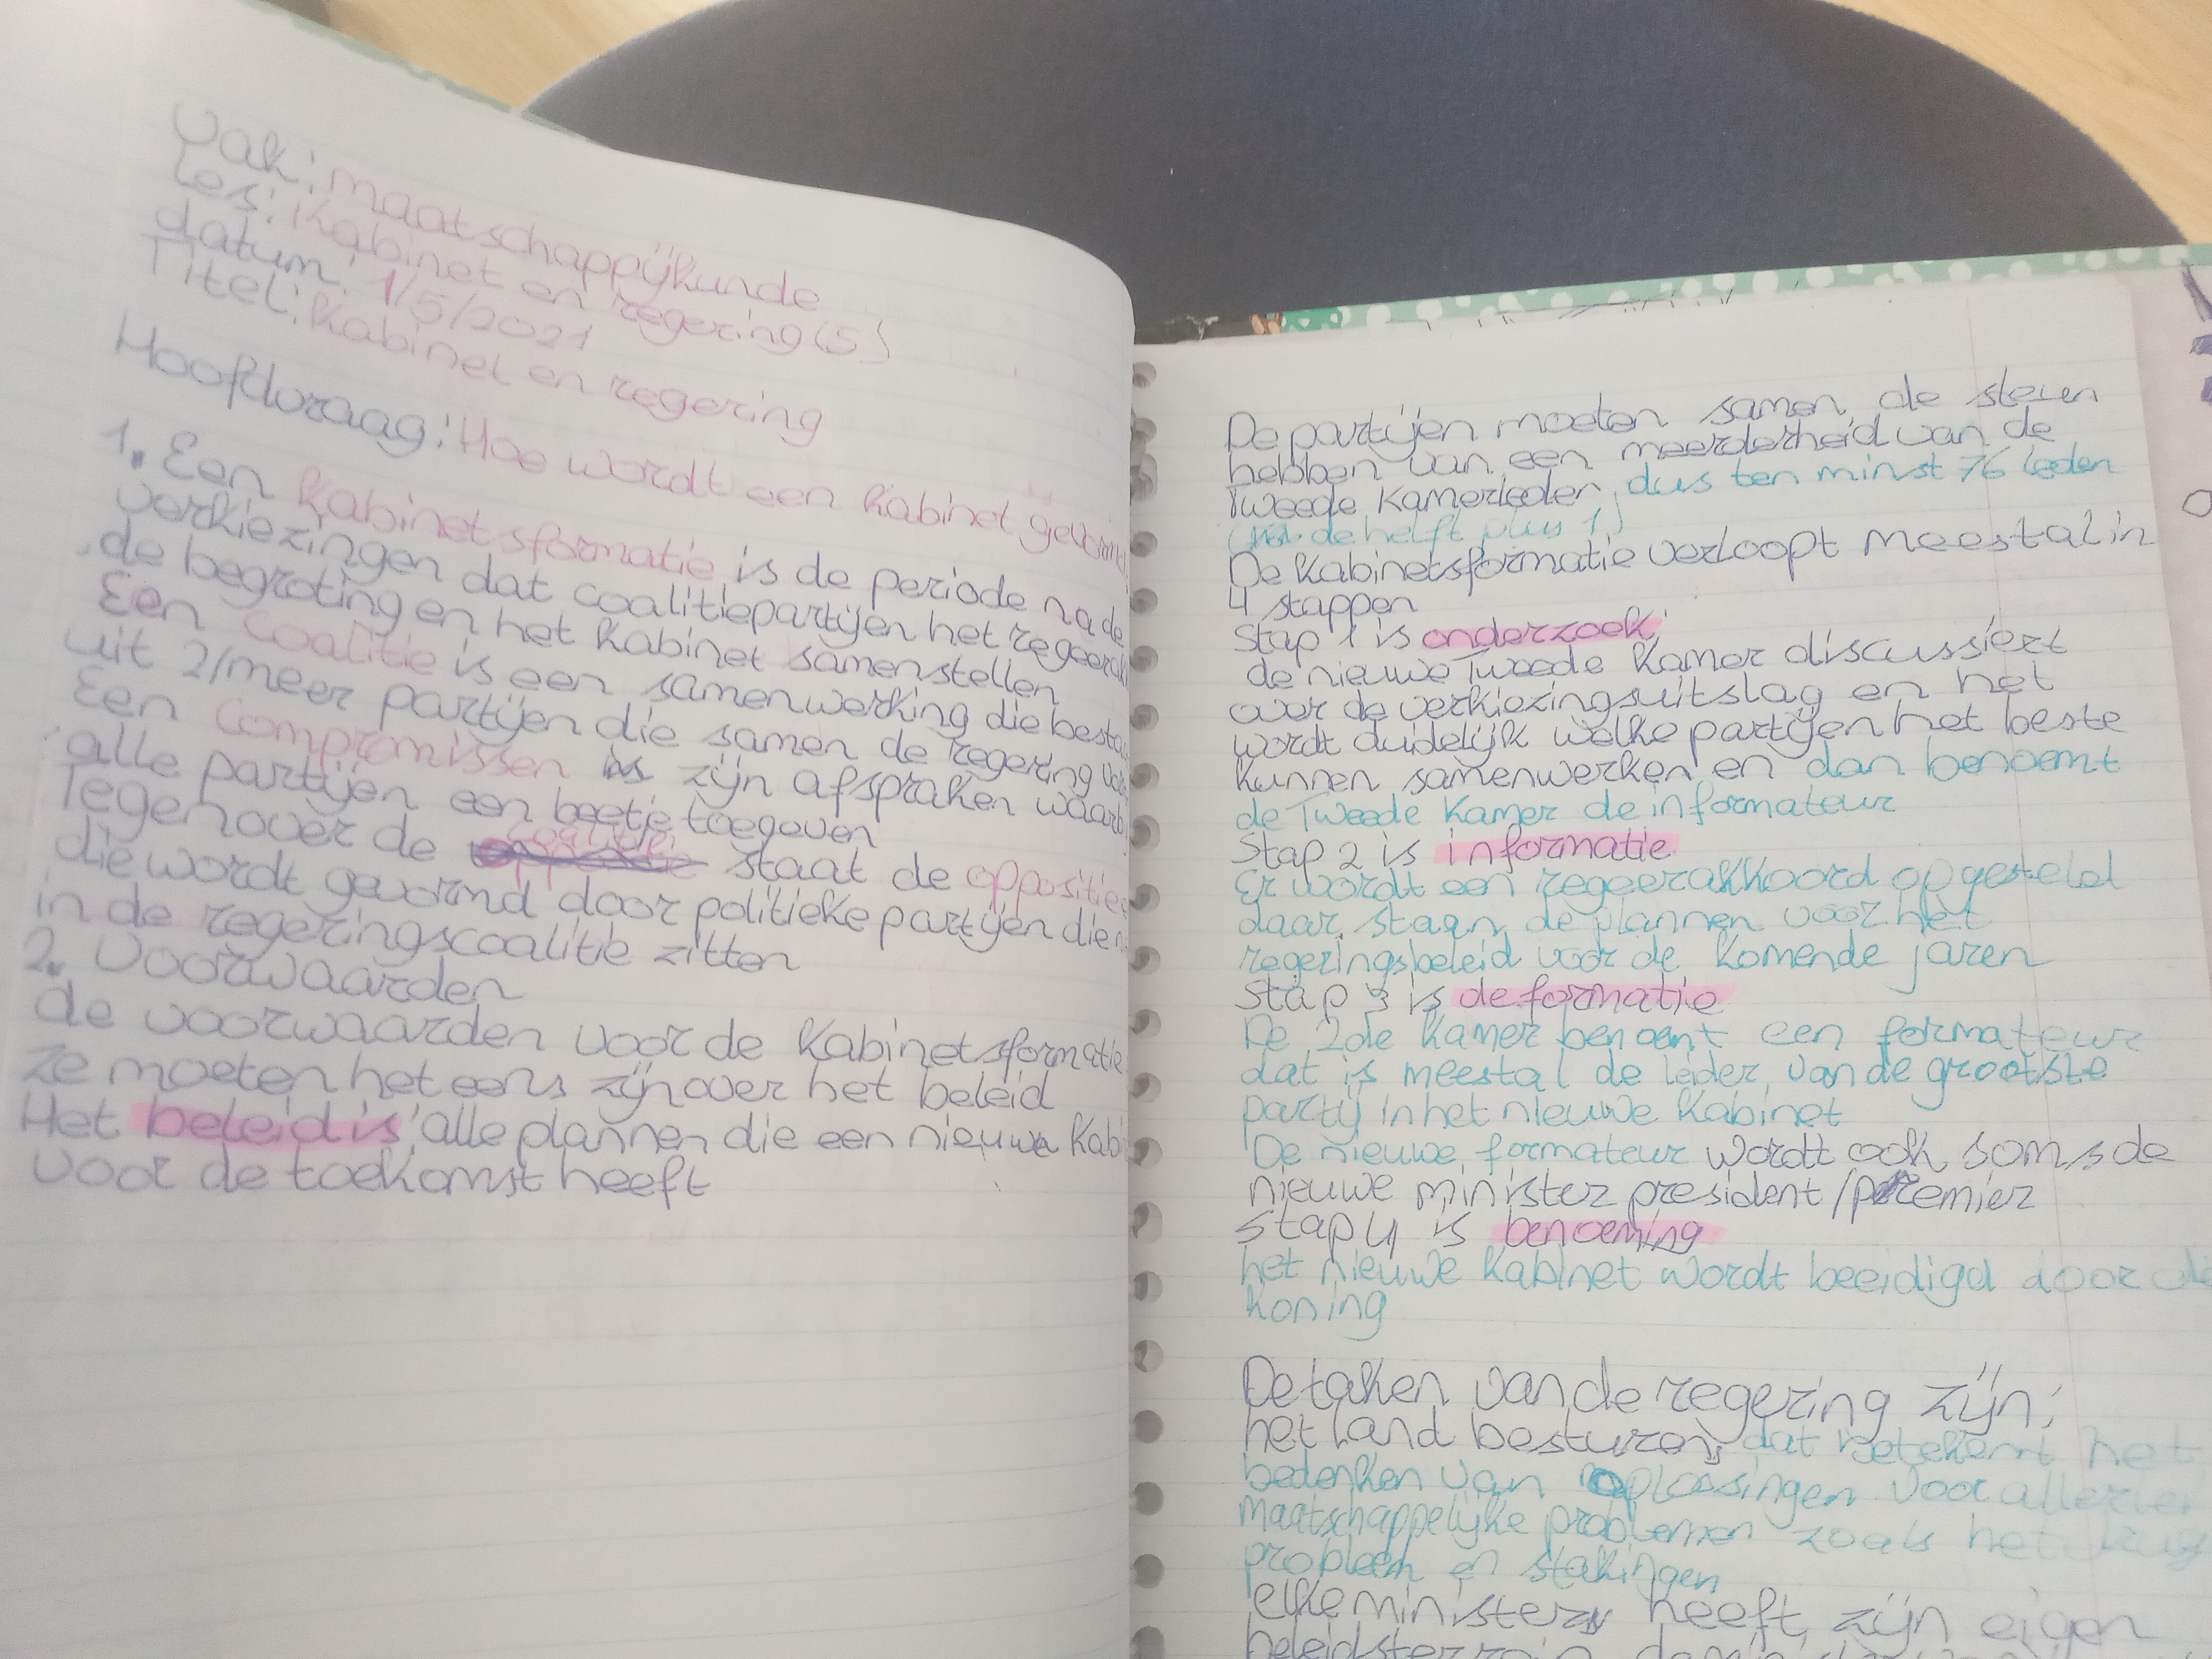 Vak: maatschappijkunde
Les: Kabinet en regering (S)
datum: 1/5/2021
Titel: Kabinet en regering
Hoofdvraag: Hoe wordt een kabinet gevormd
1. Een kabinetsformatie is de periode na de
verkiezingen dat coalitiepartijen het regeerak
de begroting en het kabinet samenstellen
Een coalitie is een samenwerking die besta
uit 2/meer partijen die samen de regering vor
Een compromissen zijn afspraken waarb
alle partijen een beetje toegeven
Tegenover de coalitie staat de oppositie
die wordt gevormd door politieke partijen die n
in de regeringscoalitie zitten
2. Voorwaarden
de voorwaarden voor de kabinetsformatie
ze moeten het eens zijn over het beleid
Het beleid is alle plannen die een nieuwe kabi
voor de toekomst heeft
De partijen moeten samen de steun
hebben van een meerderheid van de
Tweede Kamerleden, dus ten minst 76 leden
de helft plus 1)
De kabinetsformatie verloopt meestal in
4 stappen
Stap 1 is onderzoek
de nieuwe Tweede Kamer discussiert
over de verkiezingsuitslag en het
wordt duidelijk welke partijen het beste
kunnen samenwerken en dan benoemt
de Tweede Kamer de informateur
Stap 2 is informatie
Er wordt een regeerakkoord opgesteld
daar staan de plannen voor het
regeringsbeleid voor de komende jaren
Stap 3 is de formatie
De 2de Kamer benoemt een formateur
dat is meestal de leider van de grootste
partij in het nieuwe kabinet
De nieuwe formateur wordt ook soms de
nieuwe minister president/premier
Stap 4 is benoeming
het nieuwe kabinet wordt beeidigd door de
koning
De taken van de regering zijn:
het land besturen, dat betekent het
bedenken van oplossingen voor allerlei
maatschappelijke problemen zoals het
probleem en stakingen
elke minister heeft zijn eigen
beleidsterrein